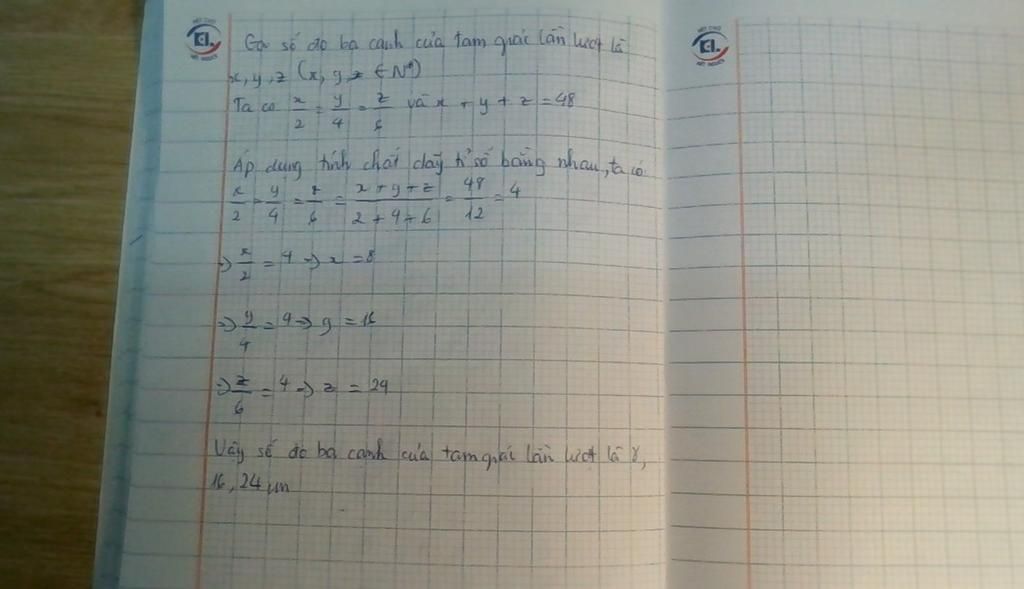 Gọi số đo ba cạnh của tam giác lần lượt là
x, y, z (x, y, z ∈ N*)
Ta có x/2 = y/4 = z/6 và x + y + z = 48
Áp dụng tính chất dãy tỉ số bằng nhau, ta có
x/2 = y/4 = z/6 = (x + y + z)/(2 + 4 + 6) = 48/12 = 4
=> x/2 = 4 => x = 8
=> y/4 = 4 => y = 16
=> z/6 = 4 => z = 24
Vậy số đo ba cạnh của tam giác lần lượt là 8,
16, 24 cm